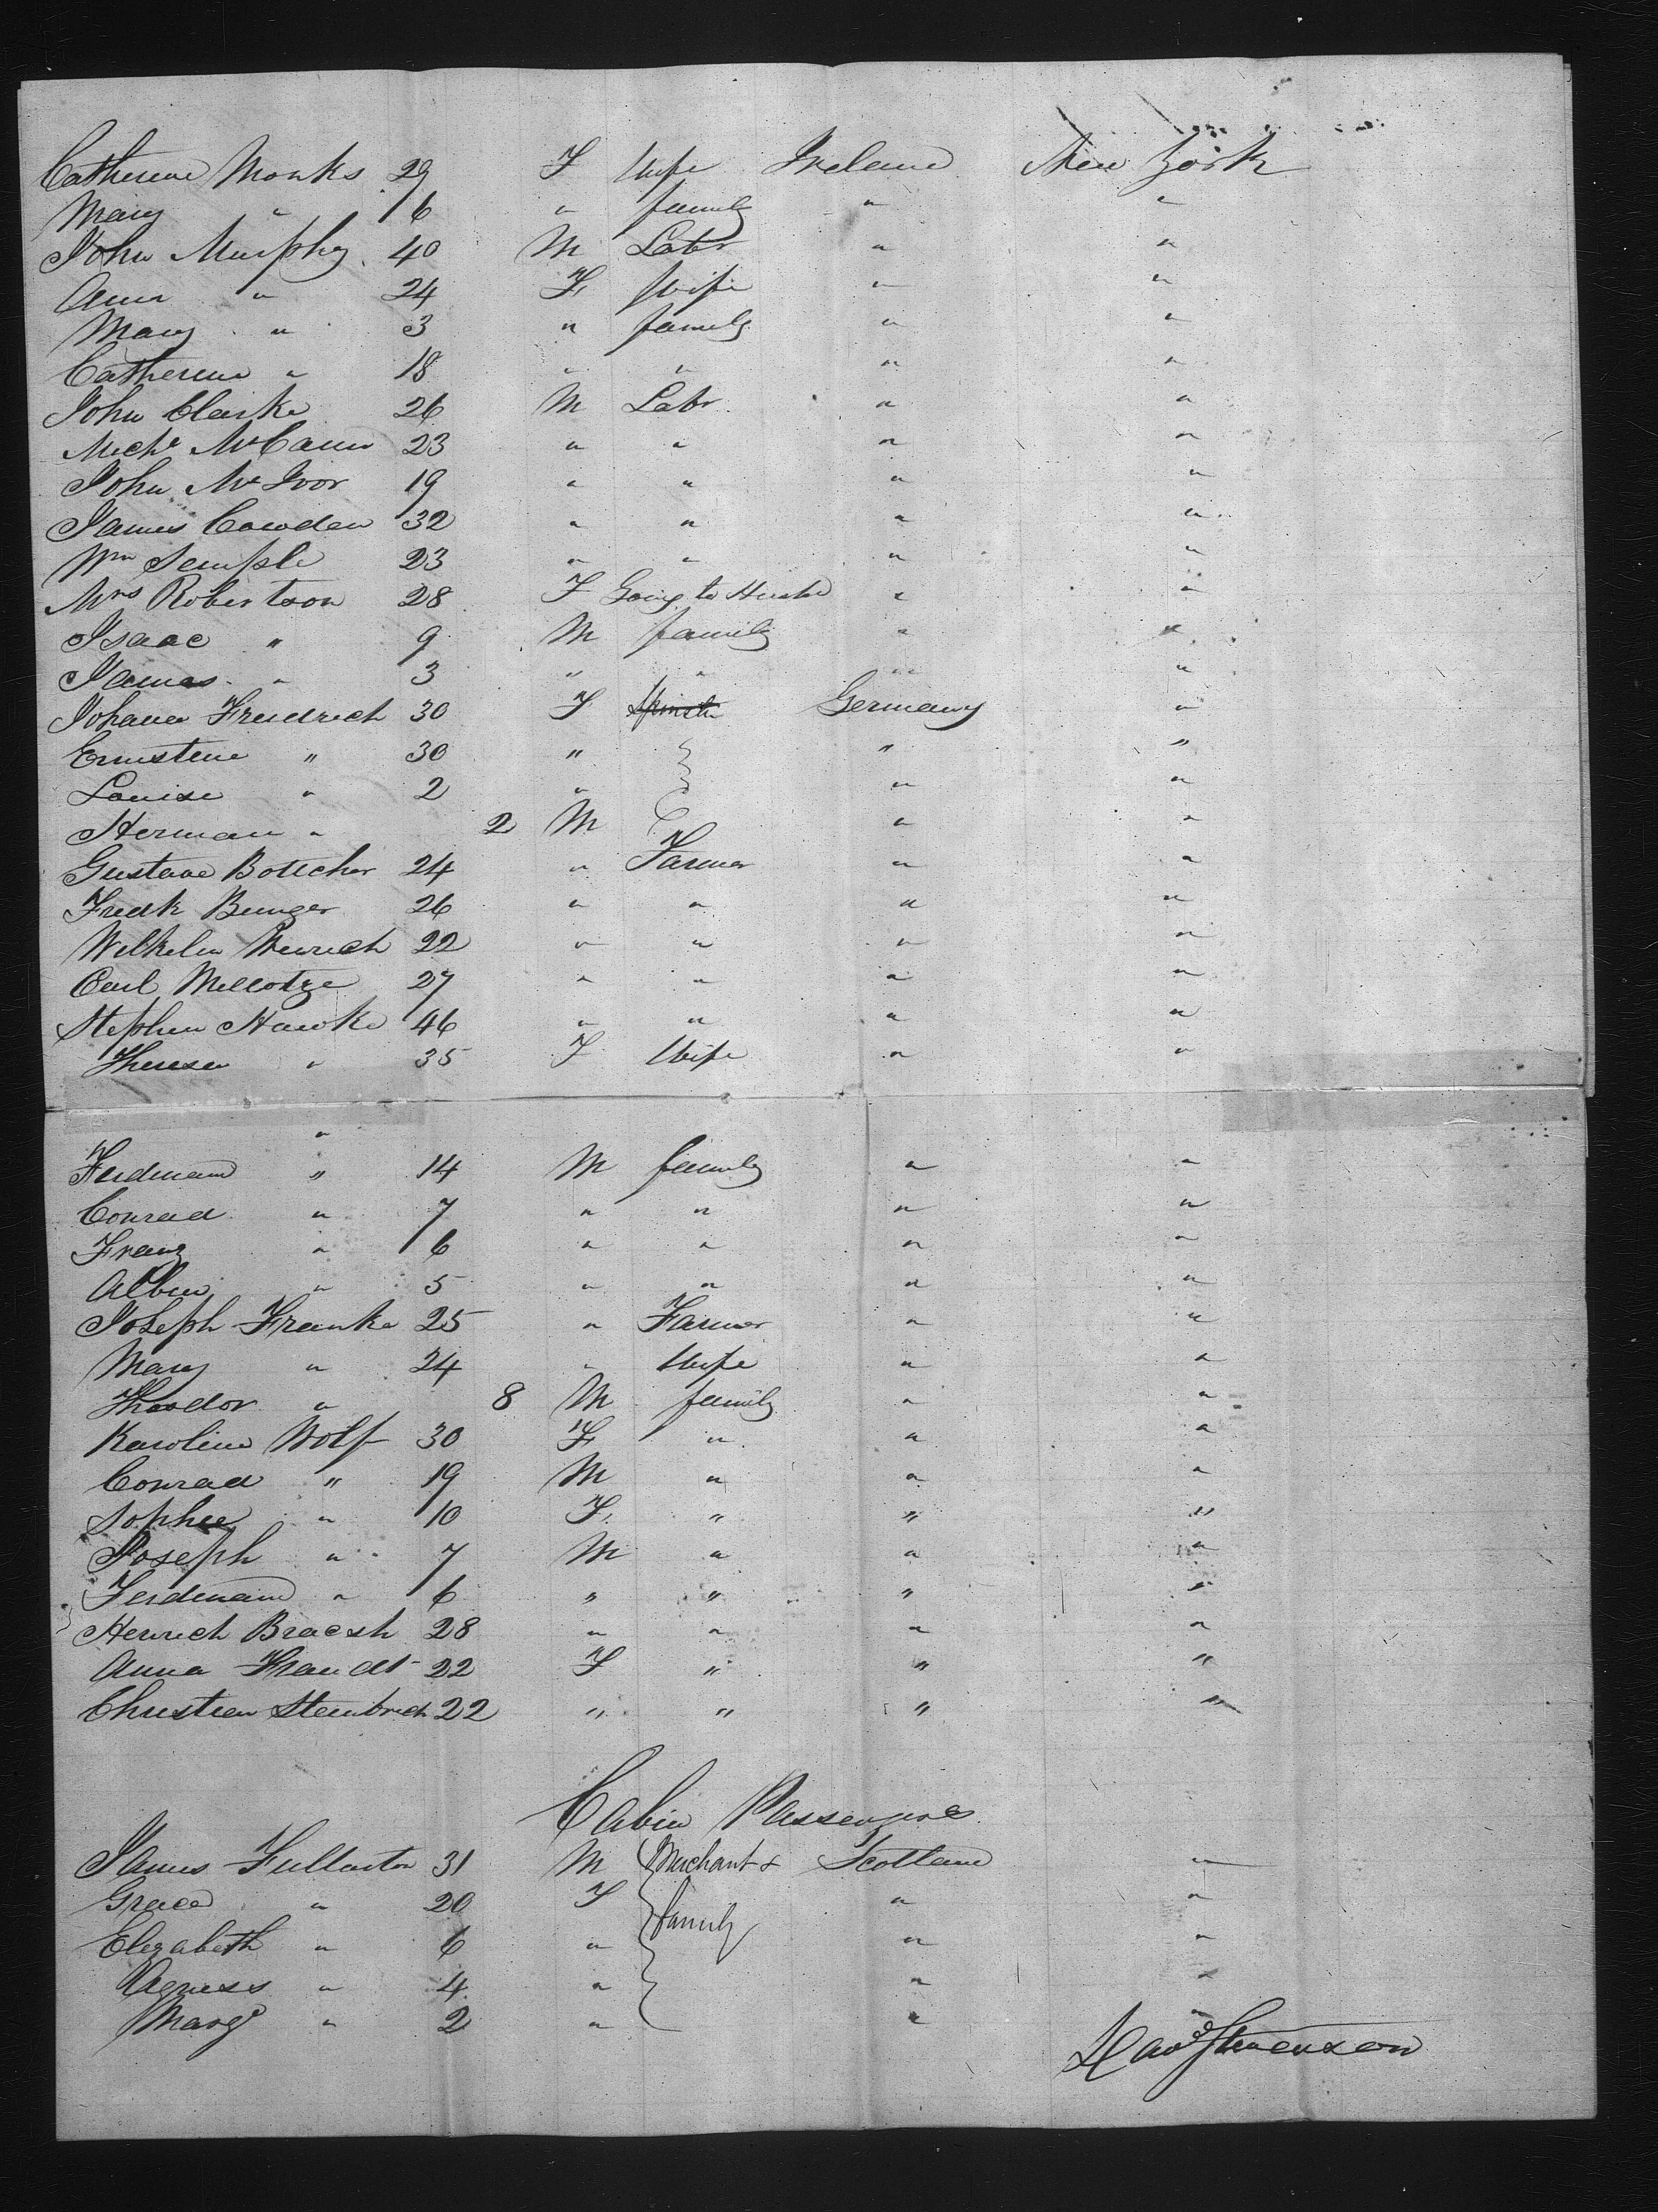 Catherine Monks 29 F Wife Ireland New York
Mary " 6 " family " "
John Murphy 40 M Labr " "
Ann " 24 F Wife " "
Mary " 3 " family " "
Catherine " 18 " " " "
John Clarke 26 M Labr " "
Michl McCann 23 " " " "
John McIvor 19 " " " "
James Cowden 32 " " " "
Wm Semple 23 " " " "
Mrs Robertson 28 F Going to Husbd "  "
Isaac " 9 M family " "
James " 3 " " " "
Johana Freidrich 30 F Spinster Germany "
Ernestine " 30 " " "
Louise " 2 " " "
Herman " 2 M " "
Gustave Bottcher 24 " Farmer " "
Fredk Bunger 26 " " " "
Wilhelm 22 " " " "
Carl 27 " " " "
Stephen Hawke 46 " " " "
Theresa " 35 F Wife " "
"
Ferdinand " 14 M family " "
Conrad " 7 " " " "
Franz " 6 " " " "
Albin " 5 " " " "
Joseph Franke 25 " Farmer " "
Mary " 24 " Wife " "
Theodor " 8 M family " "
Karoline Wolf 30 F " " "
Conrad " 19 M " " "
Sophie " 10 F " " "
Joseph " 7 M " " "
Ferdinand " 6 " " " "
Henrich Bracsh 28 " " " "
Anna 22 F " " "
Christian Steinbrich 22 " " " "
Cabin Passengers
James Fullarton 31 M Merchant & Scotland "
Grace " 20 F family " "
Elizabeth " 6 " " "
Agness " 4 " " "
Margt " 2 " " "
Davd Stevenson